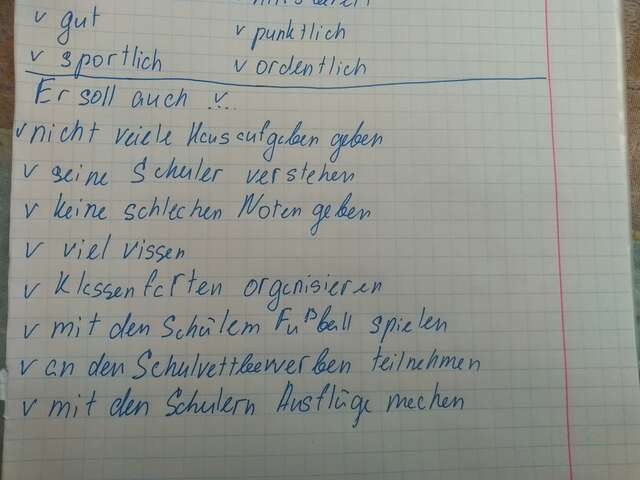 v gut
v punktlich
v sportlich
v ordentlich
Er soll auch v...
v nicht veiele Hausaufgaben geben
v seine Schuler verstehen
v keine schlechen Noten geben
v viel vissen
v Klassenfarten organisieren
v mit den Schülern Fußball spielen
v an den Schulvettbewerben teilnehmen
v mit den Schulern Ausflüge mechen